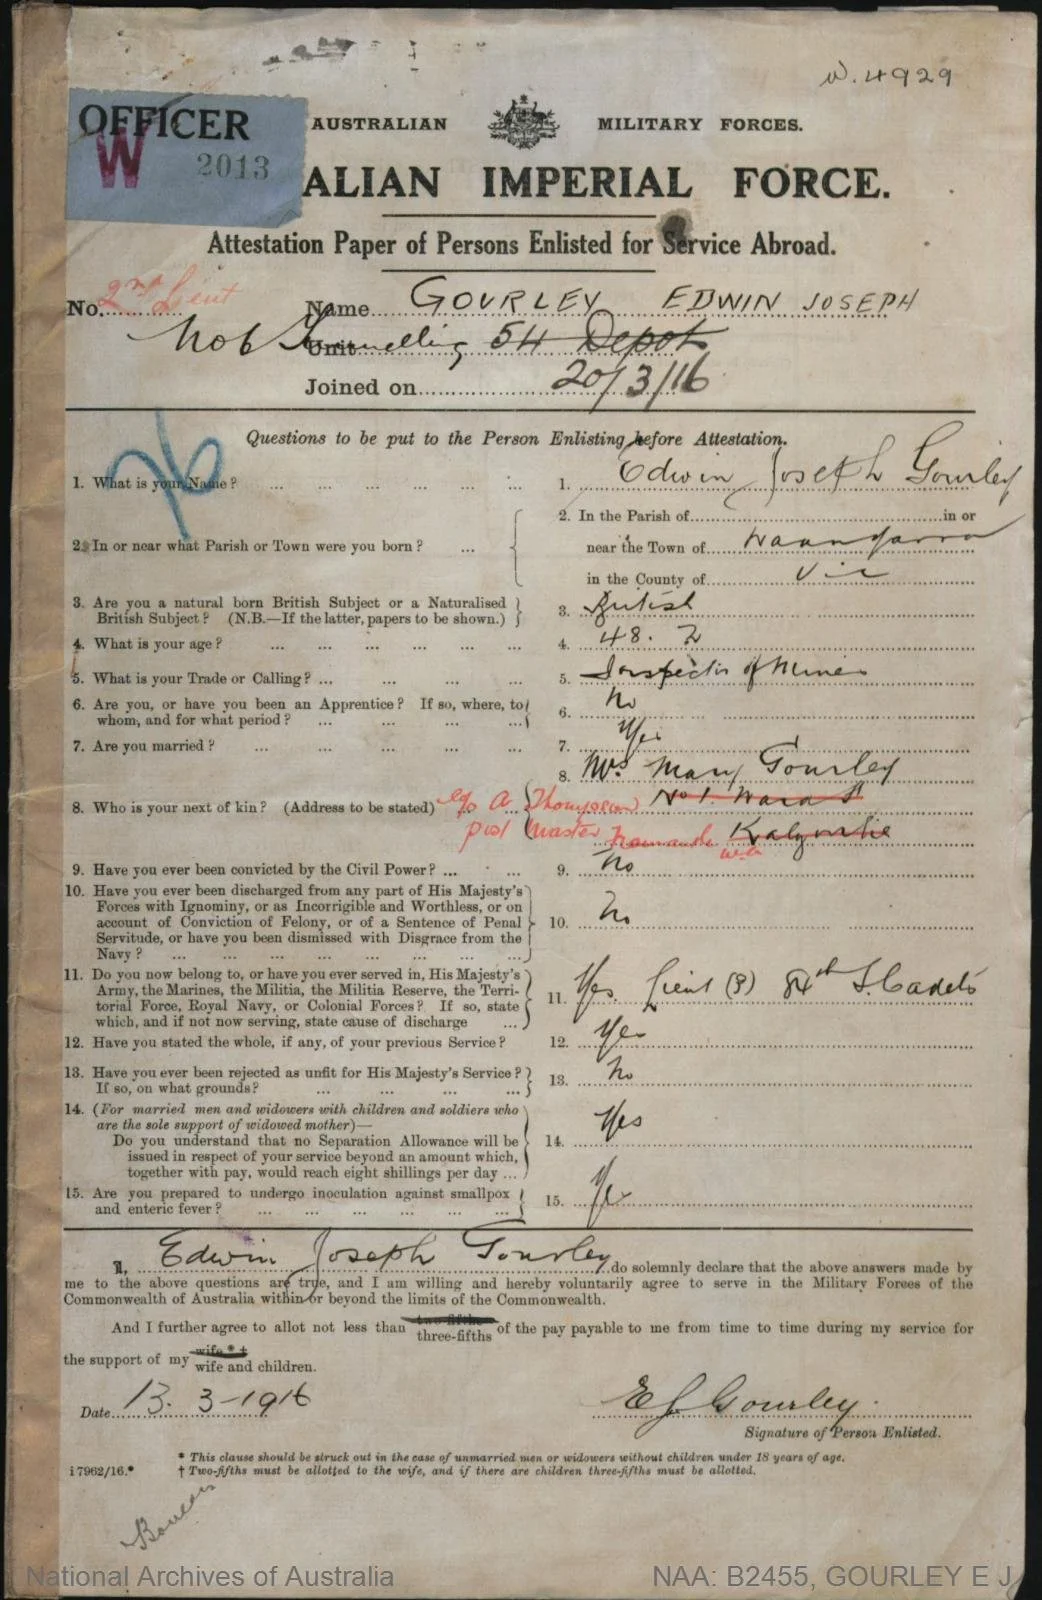 W. 4929
OFFICER
W 2013
AUSTRALIAN MILITARY FORCES.
ALIAN IMPERIAL FORCE.
Attestation Paper of Persons Enlisted for Service Abroad.
No. 2nd Lieut Name GOURLEY EDWIN JOSEPH
Unit Tunnelling 54 Depot
Joined on 20/3/16
Questions to be put to the Person Enlisting before Attestation.
76
1. What is your Name? ... 1. Edwin Joseph Gourley
2. In or near what Parish or Town were you born? ... 2. In the Parish of in or
near the Town of
in the County of Vic
3. Are you a natural born British Subject or a Naturalised
British Subject? (N.B.—If the latter, papers to be shown.) 3. British
4. What is your age? ... 4. 48.
5. What is your Trade or Calling? ... 5. Inspector of Mines
6. Are you, or have you been an Apprentice? If so, where, to
whom, and for what period? ... 6. No
7. Are you married? ... 7. Yes
8. Who is your next of kin? (Address to be stated) 8. Mrs Mary Gourley
c/o A Thompson No 1. Ward St
post Master Kalgoorlie
W.A.
9. Have you ever been convicted by the Civil Power? ... 9. No
10. Have you ever been discharged from any part of His Majesty's
Forces with Ignominy, or as Incorrigible and Worthless, or on
account of Conviction of Felony, or of a Sentence of Penal
Servitude, or have you been dismissed with Disgrace from the
Navy? ... 10. No
11. Do you now belong to, or have you ever served in, His Majesty's
Army, the Marines, the Militia, the Militia Reserve, the Terri-
torial Force, Royal Navy, or Colonial Forces? If so, state
which, and if not now serving, state cause of discharge ... 11. Yes. Lieut 84th S. Cadets
12. Have you stated the whole, if any, of your previous Service? 12. Yes
13. Have you ever been rejected as unfit for His Majesty's Service?
If so, on what grounds? ... 13. No
14. (For married men and widowers with children and soldiers who
are the sole support of widowed mother)—
Do you understand that no Separation Allowance will be
issued in respect of your service beyond an amount which,
together with pay, would reach eight shillings per day ... 14. Yes
15. Are you prepared to undergo inoculation against smallpox
and enteric fever? ... 15. Yes
I, Edwin Joseph Gourley do solemnly declare that the above answers made by
me to the above questions are true, and I am willing and hereby voluntarily agree to serve in the Military Forces of the
Commonwealth of Australia within or beyond the limits of the Commonwealth.
And I further agree to allot not less than two-fifths three-fifths of the pay payable to me from time to time during my service for
the support of my wife * † wife and children.
Date 13. 3-1916 E J Gourley
Signature of Person Enlisted.
* This clause should be struck out in the case of unmarried men or widowers without children under 18 years of age.
i 7962/16.* † Two-fifths must be allotted to the wife, and if there are children three-fifths must be allotted.
National Archives of Australia NAA: B2455, GOURLEY E J